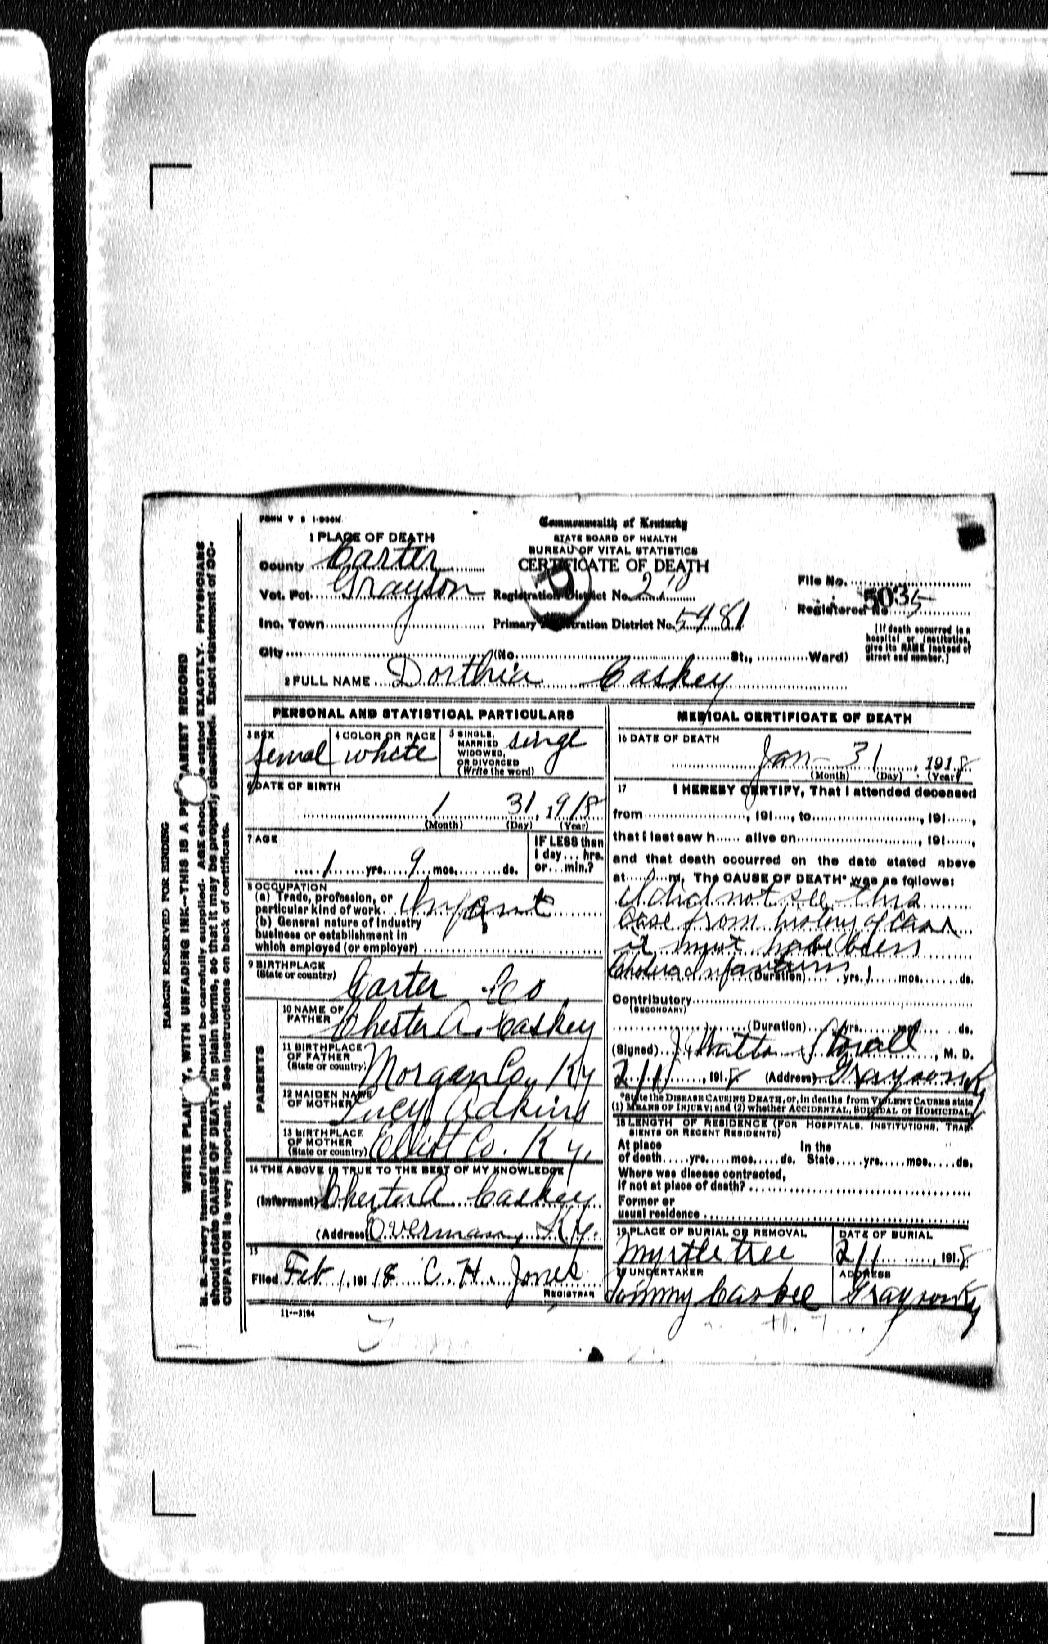 FORM V S 1-
Commonwealth of Kentucky
STATE BOARD OF HEALTH
BUREAU OF VITAL STATISTICS
CERTIFICATE OF DEATH
1 PLACE OF DEATH
County Carter
Vot. Pct. Grayson
Registration District No. 210
Inc. Town
Primary Registration District No. 5481
File No.
Registered No. 5035
[If death occurred in a hospital or institution, give its NAME instead of street and number.]
City (No. St., Ward)
2 FULL NAME Dorthria Caskey
PERSONAL AND STATISTICAL PARTICULARS
3 SEX femal
4 COLOR OR RACE white
5 SINGLE, MARRIED WIDOWED, OR DIVORCED (Write the word) singe
6 DATE OF BIRTH
1 31, 1918
(Month) (Day) (Year)
7 AGE
1 yrs. 9 mos. ds.
IF LESS than 1 day ... hrs. or ... min.?
8 OCCUPATION
(a) Trade, profession, or particular kind of work Infant
(b) General nature of industry business or establishment in which employed (or employer)
9 BIRTHPLACE (State or country) Carter Co.
PARENTS
10 NAME OF FATHER Chester A. Caskey
11 BIRTHPLACE OF FATHER (State or country) Morgan Co, Ky
12 MAIDEN NAME OF MOTHER Lucy Adkins
13 BIRTHPLACE OF MOTHER (State or country) Elliott Co. Ky.
14 THE ABOVE IS TRUE TO THE BEST OF MY KNOWLEDGE
(Informant) Chester A Caskey
(Address) Overman, Ky.
15
Filed Feb 1, 1918 C. H. Jones
REGISTRAR
11-3184
MEDICAL CERTIFICATE OF DEATH
16 DATE OF DEATH
Jan - 31, 1918
(Month) (Day) (Year)
17 I HEREBY CERTIFY, That I attended deceased
from , 191 , to , 191 ,
that I last saw h alive on , 191 ,
and that death occurred on the date stated above
at m. The CAUSE OF DEATH* was as follows:
I did not see this
case from history of case
it must have been
Cholera Infantum
(Duration) yrs. 1 mos. ds.
Contributory
(SECONDARY)
(Duration) yrs. ds.
(Signed) J Watts Stovall, M. D.
2/1, 1918 (Address) Grayson Ky
*State the DISEASE CAUSING DEATH, or, in deaths from VIOLENT CAUSES state (1) MEANS OF INJURY; and (2) whether ACCIDENTAL, SUICIDAL or HOMICIDAL
18 LENGTH OF RESIDENCE (FOR HOSPITALS, INSTITUTIONS, TRANSIENTS OR RECENT RESIDENTS)
At place of death yrs. mos. ds. In the State yrs. mos. ds.
Where was disease contracted,
if not at place of death?
Former or
usual residence
19 PLACE OF BURIAL OR REMOVAL Myrtle tree
DATE OF BURIAL 2/1, 1918
20 UNDERTAKER Tommy Caskee
ADDRESS Grayson Ky
MARGIN RESERVED FOR BINDING
WRITE PLAINLY, WITH UNFADING INK--THIS IS A PERMANENT RECORD
N. B.--Every item of information should be carefully supplied. AGE should be stated EXACTLY. PHYSICIANS
should state CAUSE OF DEATH in plain terms, so that it may be properly classified. Exact statement of OC-
CUPATION is very important. See instructions on back of certificate.